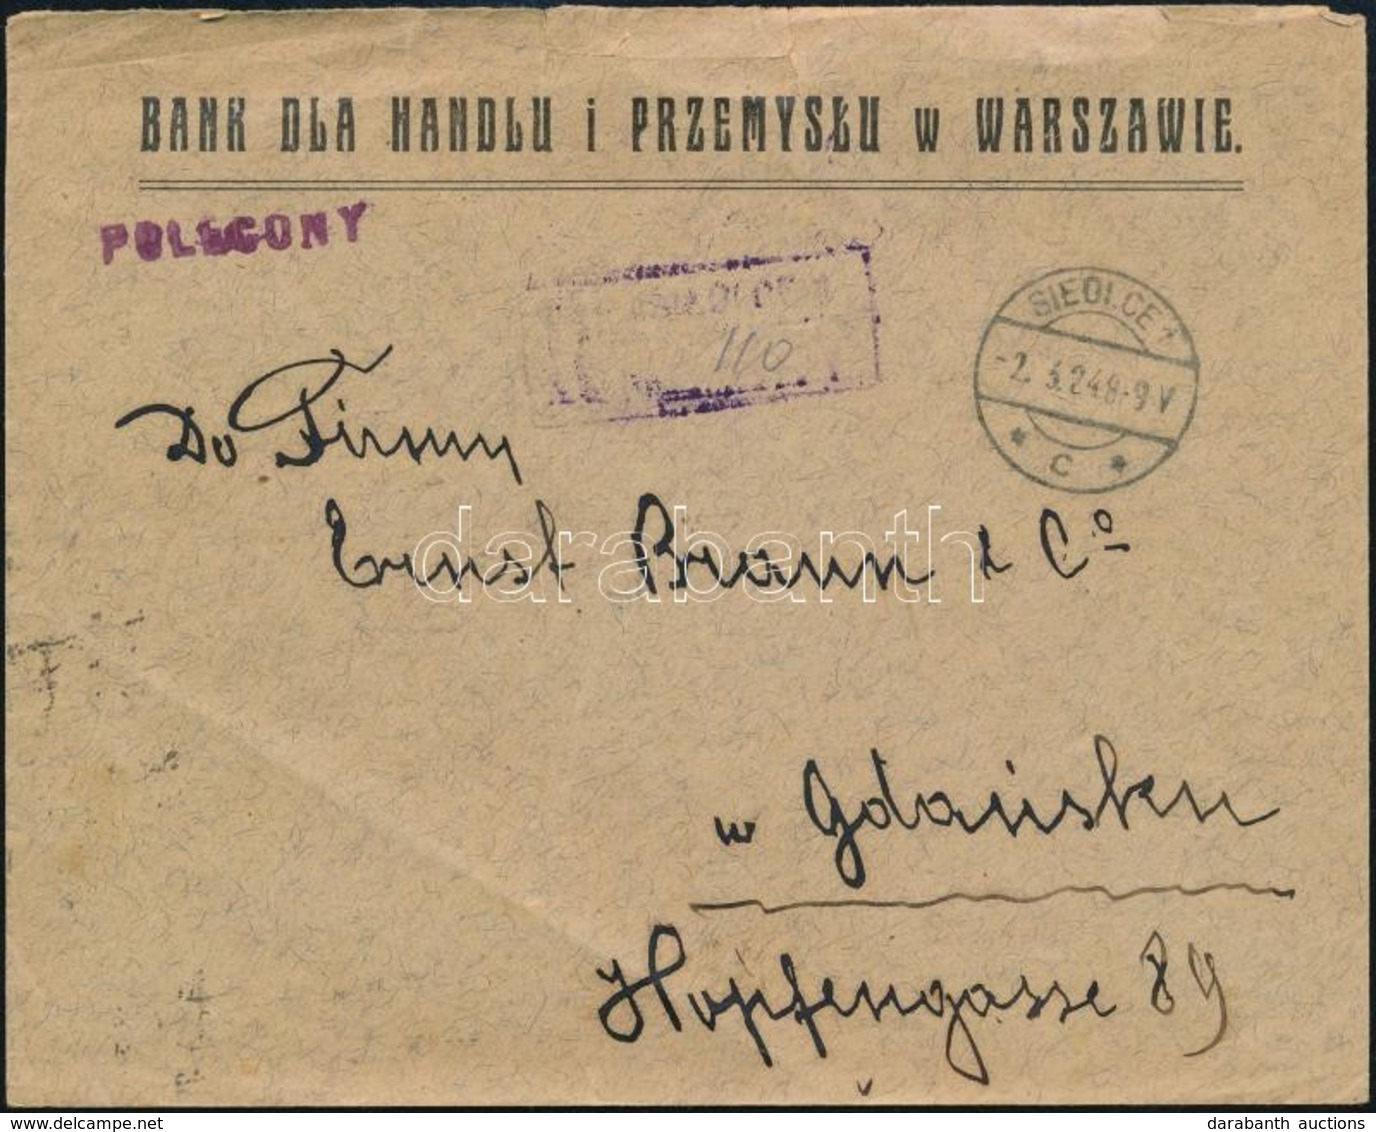 BANK DLA HANDLU i PRZEMYSŁU w WARSZAWIE.
POLECONY
SIEDLCE
110
SIEDLCE 1
-2. 3.24 8-9 V
* c *
Do Firmy
Ernst Braun & Co
w Gdańsku
Hopfengasse 89
darabanth
darabanth auctions